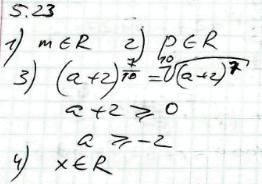 5.23
1) m ∈ R 2) p ∈ R
3) (a+2)^{7/10} = \sqrt[10]{(a+2)^7}
a+2 ⩾ 0
a ⩾ -2
4) x ∈ R